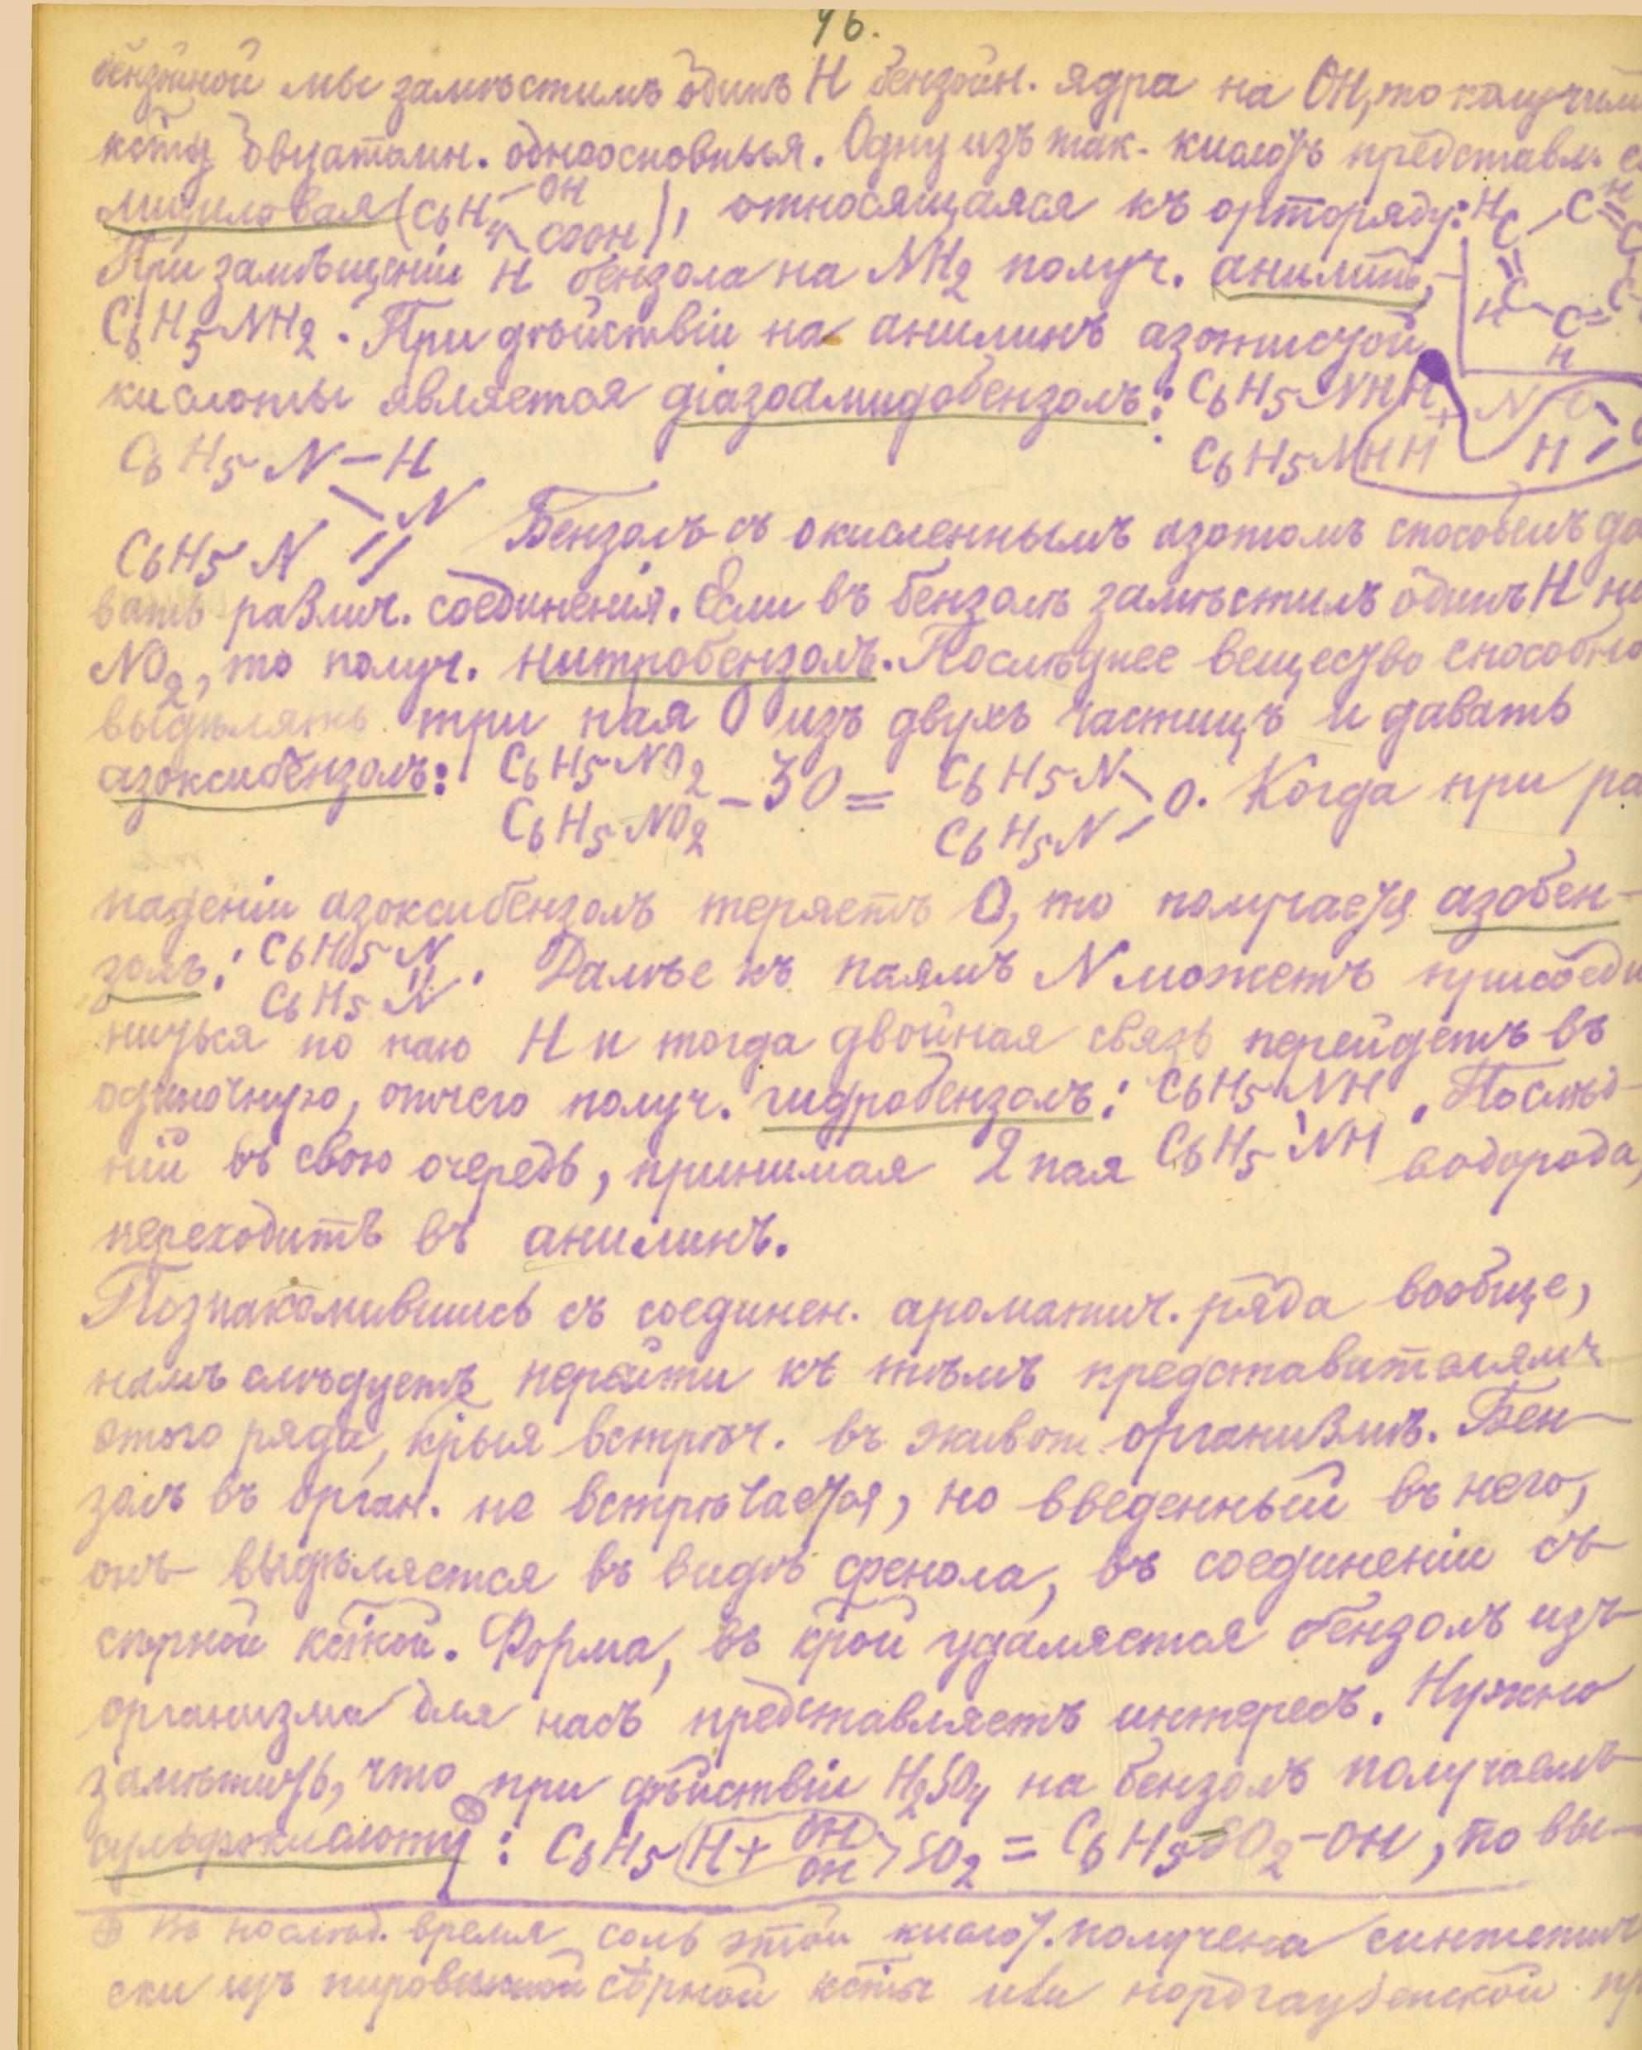 46.
бензойной мы замѣстимъ одинъ H бензойн. ядра на OH, то получимъ
к-ту двуатомн. одноосновныя. Одну изъ так. кислотъ представл.
лициловая (C6H4 – OH COOH), относящаяся къ орторяду: H C – C H C
При замѣщеніи H бензола на NH2 получ. анилинъ, –
C6H5NH2. При дѣйствіи на анилинъ азотистой H C C C H
кислоты является діазоамидобензолъ: C6H5NHH + N O
C6H5N – H C6H5NHH H
N
C6H5N Бензолъ съ окисленнымъ азотомъ способенъ да
вать различ. соединенія. Если въ бензолѣ замѣстимъ одинъ H на
NO2, то получ. нитробензолъ. Послѣднее вещество способно
выдѣлять три пая O изъ двухъ частицъ и давать
азоксибензолъ: C6H5NO2 C6H5NO2 – 3O = C6H5N C6H5N O. Когда при ра
паденіи азоксибензолъ теряетъ O, то получается азобен-
золъ: C6H5N = C6H5N. Далѣе къ паямъ N можетъ присоеди
ниться по паю H и тогда двойная связь перейдетъ въ
одиночную, отчего получ. гидробензолъ: C6H5NH C6H5NH. Послѣд-
ній въ свою очередь, принимая 2 пая водорода,
переходитъ въ анилинъ.
Познакомившись съ соединен. ароматич. ряда вообще,
намъ слѣдуетъ перейти къ тѣмъ представителямъ
этого ряда, крыя встрѣч. въ живот. организмѣ. Бен-
золъ въ орган. не встрѣчается, но введенный въ него,
онъ выдѣляется въ видѣ фенола, въ соединеніи съ
сѣрной к-той. Форма, въ крой удаляется бензолъ изъ
организма для насъ представляетъ интересъ. Нужно
замѣтить, что при дѣйствіи H2SO4 на бензолъ получаемъ
сульфокислоту ⊕: C6H5 H + OH OH > SO2 = C6H5 – SO2 – OH, по вы-
⊕ Въ послѣд. время соль этой кислот. получена синтетич
ски изъ сѣрной к-ты или нордгаузенской